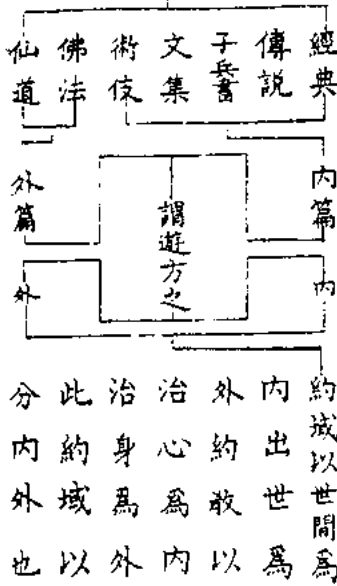 經典
傳說
子兵書
文集
術伎
佛法
仙道
內篇
外篇
謂遊方之
內
外
約域以世間爲
內出世爲
外約教以
治心爲內
治身爲外
此約域以
分內外也